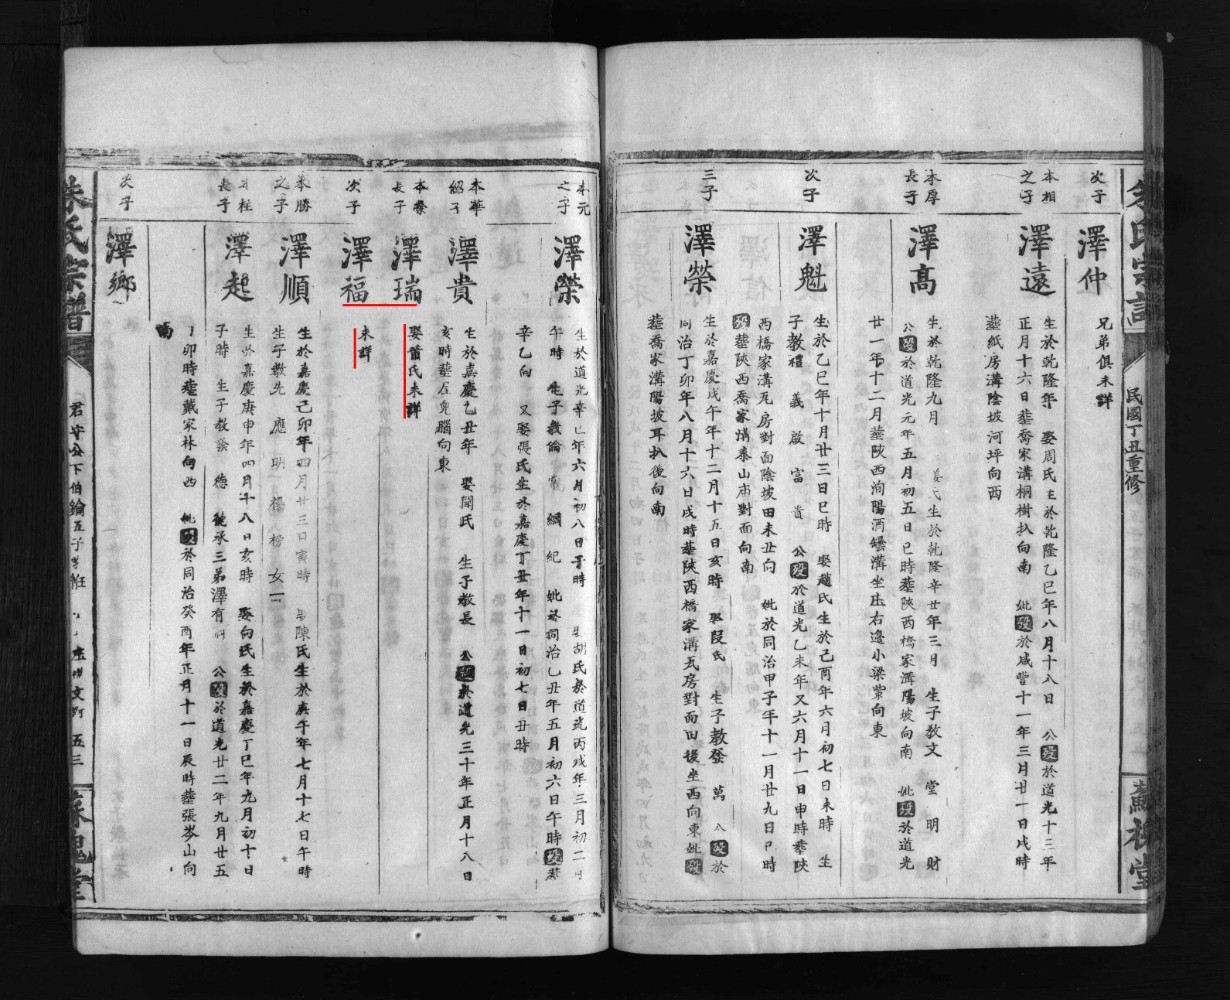 次子
澤仲
兄弟俱未詳
本相
之子
澤遠
生於乾隆年 娶周氏生於乾隆乙巳年八月十八日 公歿於道光十三年
正月十六日塟喬家溝桐樹扒向南 妣歿於咸豐十一年三月廿一日戌時
塟紙房溝陰坡河坪向西
本厚
長子
澤高
生於乾隆九月 氏生於乾隆辛廿年三月 生子教文 堂 明 財
公歿於道光元年五月初五日巳時塟陝西橋家溝陽坡向南 妣歿於道光
廿一年十二月塟陝西洵陽洒溝坐庄右邊小梁向東
次子
澤魁
生於乙巳年十月廿三日巳時 娶趙氏生於己酉年六月初七日未時 生
子教禮 義 啟 富 貴 公歿於道光乙未年又六月十一日申時塟陝
西橋家溝瓦房對面陰坡田未丑向 妣於同治甲子年十一月廿九日時
歿塟陝西喬家溝泰山庙對面向南
三子
澤榮
生於嘉慶戊午年十二月十五日亥時 娶段氏 生子教發 萬 公歿於
同治丁卯年八月十六日戌時塟陝西橋家溝瓦房對面田後坐西向東妣歿
塟喬家溝陽坡耳扒後向南
朱氏宗譜
民國丁丑重修
本元
之子
澤榮
生於道光辛巳年六月初八日子時 胡氏於道光丙戌年三月初二日
午時 生子教倫 綱 紀 妣於同治乙丑年五月初六日午時歿塟
辛乙向 又娶張氏生於嘉慶丁丑年十一日初七日丑時
本華
紹子
澤貴
生於嘉慶乙丑年 娶開氏 生子教長 公歿於道光三十年正月十八日
亥時塟屋兔腦向東
本榮
長子
澤瑞
娶蕾氏未詳
次子
澤福
未詳
本勝
之子
澤順
生於嘉慶己卯年四月廿三日寅時 陳氏生於庚午年七月十七日午時
生子教先 應 明 楊 榜 女二
本柱
長子
澤起
生於嘉慶庚申年四月十八日亥時 娶向氏生於嘉慶丁巳年九月初十日
子時 生子教 德 承三弟澤有 公歿於道光廿二年九月廿五
卯時塟戴家林向西 妣歿於同治癸酉年正月十一日辰時塟張岑山向
南
次子
澤鄉
朱氏宗譜